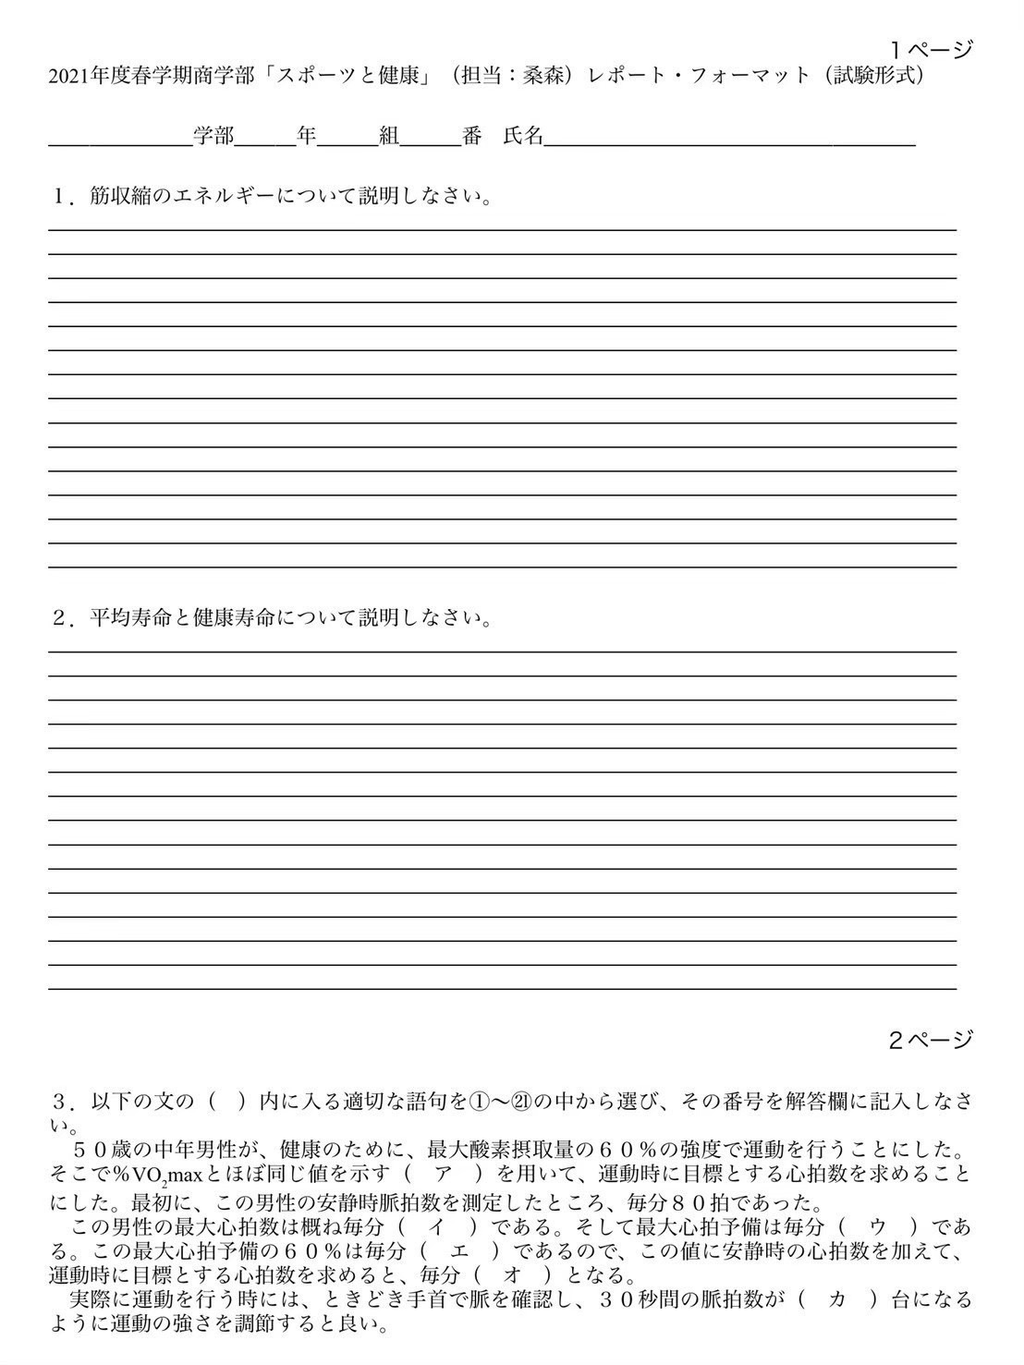 １ページ
2021年度春学期商学部「スポーツと健康」（担当：桑森）レポート・フォーマット（試験形式）
______________学部______年______組______番　氏名____________________________________
１．筋収縮のエネルギーについて説明しなさい。
２．平均寿命と健康寿命について説明しなさい。
２ページ
３．以下の文の（　）内に入る適切な語句を①〜㉑の中から選び、その番号を解答欄に記入しなさ
い。
　５０歳の中年男性が、健康のために、最大酸素摂取量の６０％の強度で運動を行うことにした。
そこで%VO₂maxとほぼ同じ値を示す（　ア　）を用いて、運動時に目標とする心拍数を求めること
にした。最初に、この男性の安静時脈拍数を測定したところ、毎分８０拍であった。
　この男性の最大心拍数は概ね毎分（　イ　）である。そして最大心拍予備は毎分（　ウ　）であ
る。この最大心拍予備の６０％は毎分（　エ　）であるので、この値に安静時の心拍数を加えて、
運動時に目標とする心拍数を求めると、毎分（　オ　）となる。
　実際に運動を行う時には、ときどき手首で脈を確認し、３０秒間の脈拍数が（　カ　）台になる
ように運動の強さを調節すると良い。